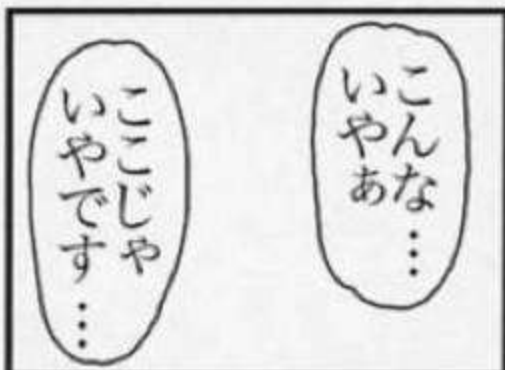 こんな…
いやぁ
ここじゃ
いやです…